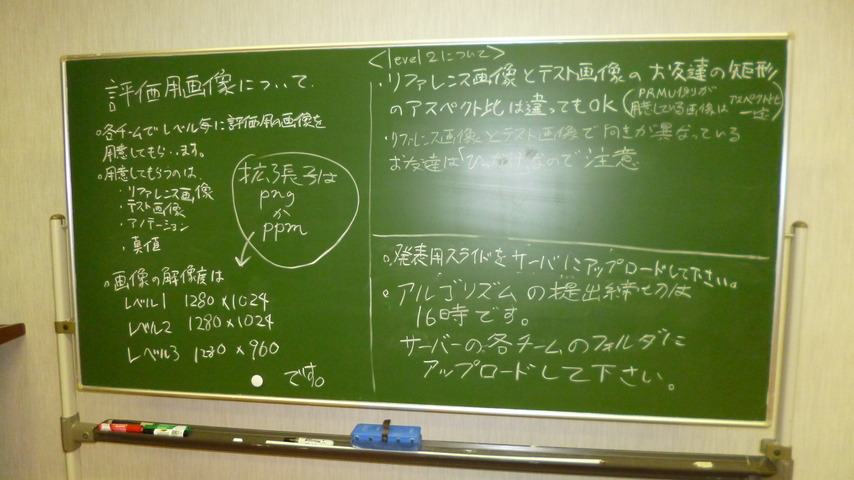 評価用画像について
○各チームでレベル毎に評価用の画像を
用意してもらいます。
○用意してもらうのは、
・リファレンス画像
・テスト画像
・アノテーション
・真値
拡張子は
png
か
ppm
○画像の解像度は
レベル1 1280×1024
レベル2 1280×1024
レベル3 1280×960
です。
<level 2について>
・リファレンス画像とテスト画像のお友達の矩形
のアスペクト比は違ってもOK
(PRMU側が
用意している画像は アスペクト比
一定)
・リファレンス画像とテスト画像で向きが異なっている
お友達は なので注意
○発表用スライドをサーバにアップロードして下さい。
○アルゴリズムの提出締切は
16時です。
サーバーの各チームのフォルダに
アップロードして下さい。